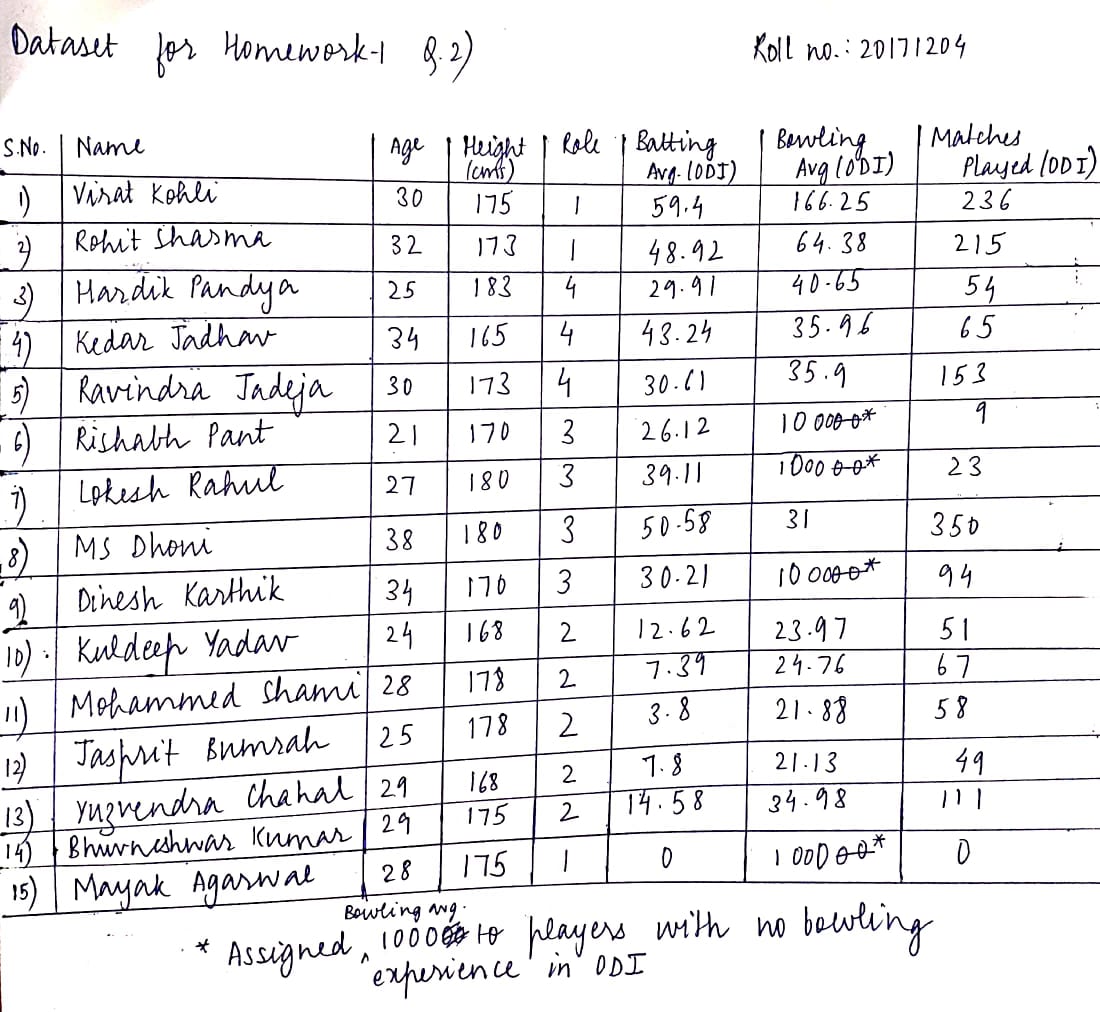 Dataset for Homework-1 Q.2) Roll no.: 20171204
S.No. Name Age Height (cms) Role Batting Avg. (ODI) Bowling Avg (ODI) Matches Played (ODI)
1) Virat Kohli 30 175 1 59.4 166.25 236
2) Rohit Sharma 32 173 1 48.92 64.38 215
3) Hardik Pandya 25 183 4 29.91 40.65 54
4) Kedar Jadhav 34 165 4 43.24 35.96 65
5) Ravindra Jadeja 30 173 4 30.61 35.9 153
6) Rishabh Pant 21 170 3 26.12 1000* 9
7) Lokesh Rahul 27 180 3 39.11 1000* 23
8) MS Dhoni 38 180 3 50.58 31 350
9) Dinesh Karthik 34 170 3 30.21 1000* 94
10) Kuldeep Yadav 24 168 2 12.62 23.97 51
11) Mohammed Shami 28 178 2 7.39 24.76 67
12) Jasprit Bumrah 25 178 2 3.8 21.88 58
13) Yuzvendra Chahal 29 168 2 7.8 21.13 49
14) Bhuvneshwar Kumar 29 175 2 14.58 34.98 111
15) Mayak Agarwal 28 175 1 0 1000* 0
* Assigned Bowling avg. 1000 to players with no bowling
experience in ODI